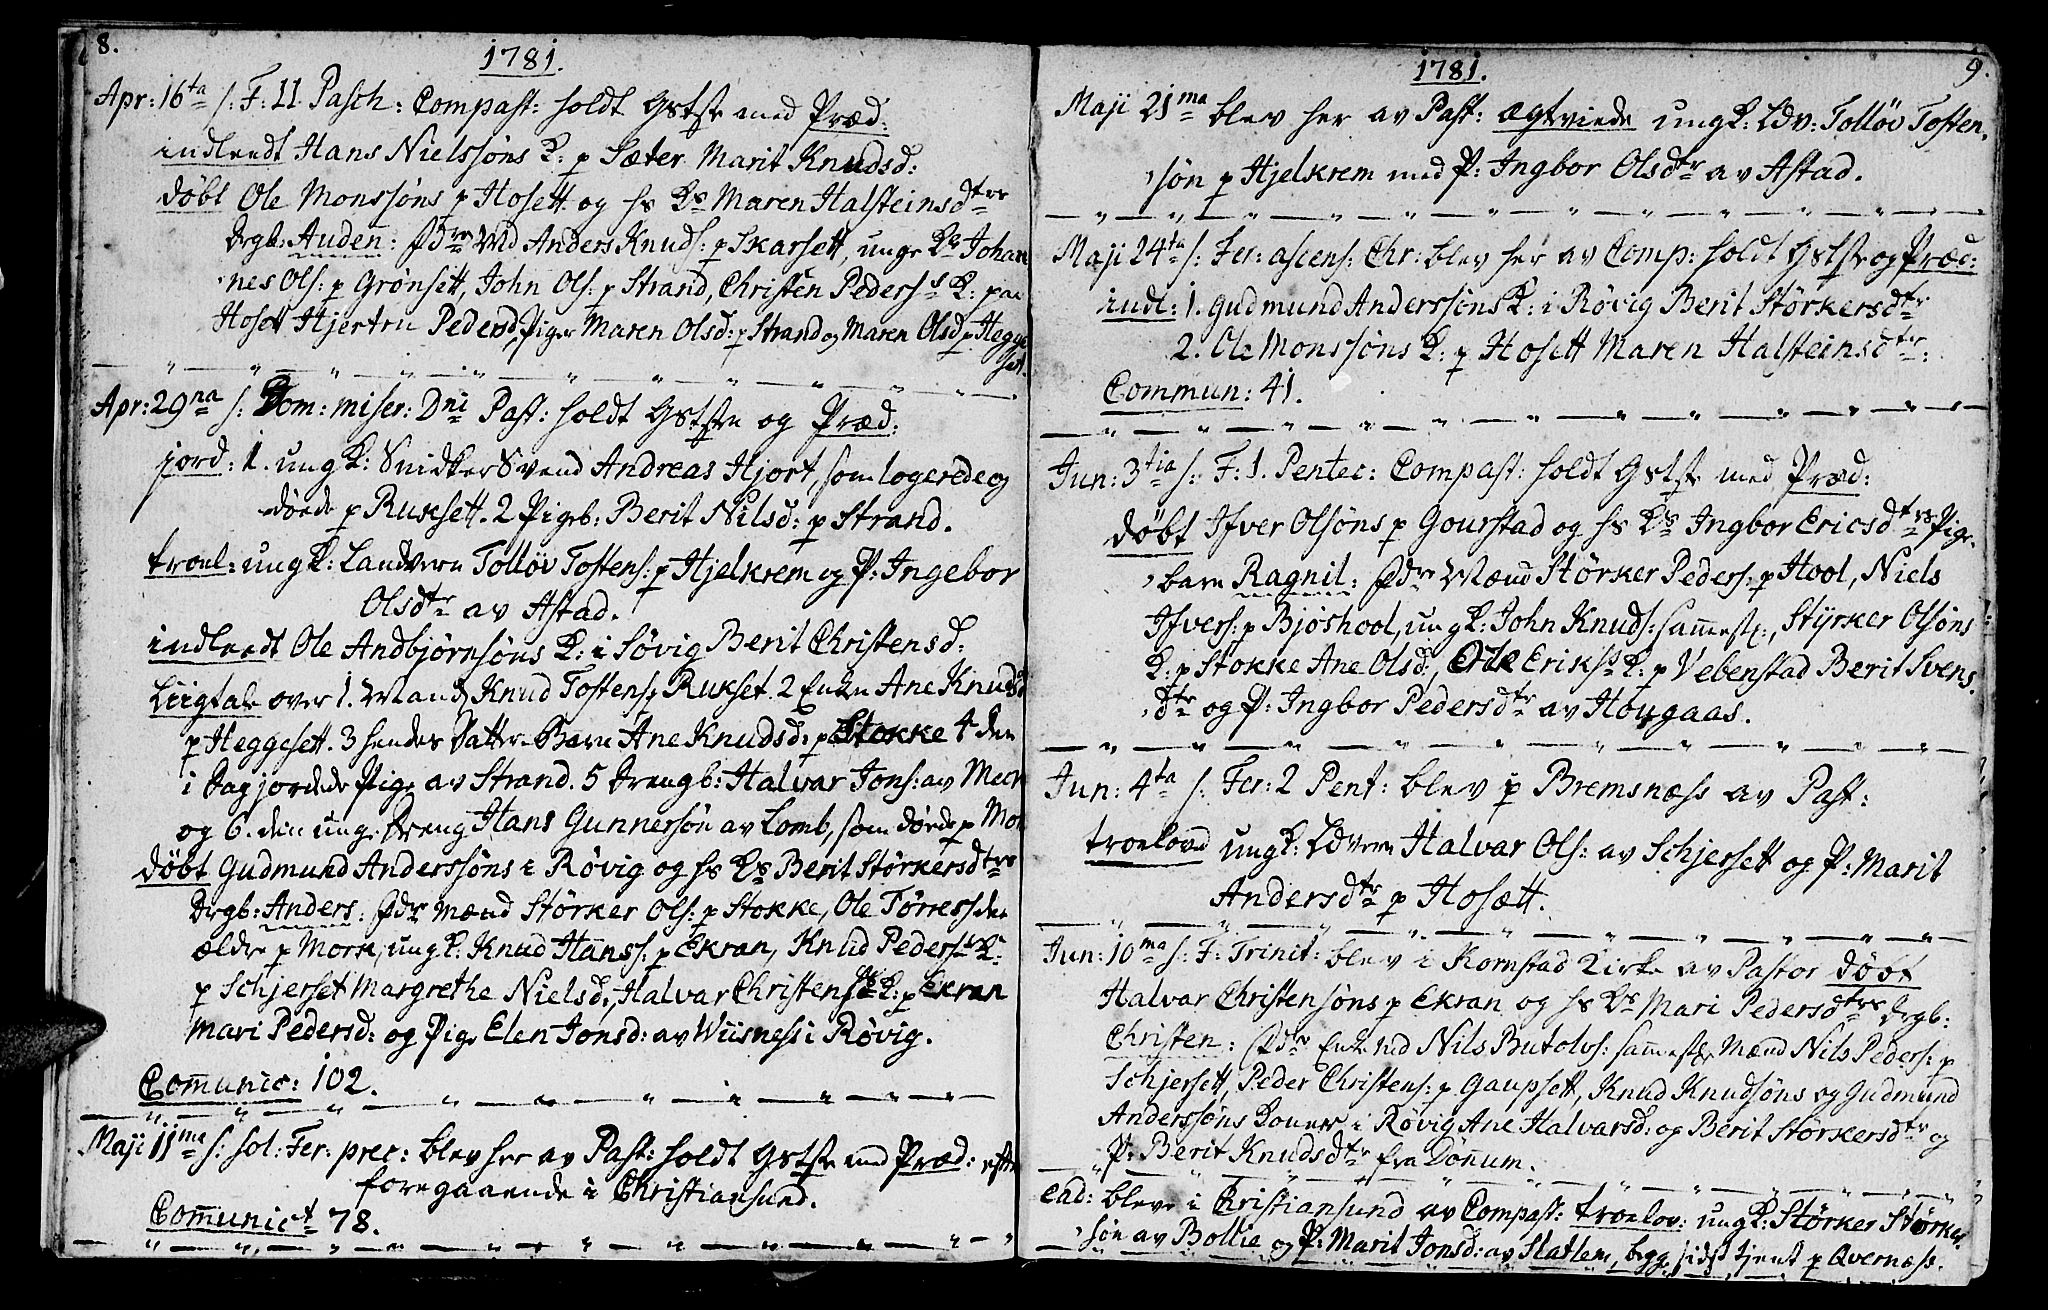 8.
1781.
Apr: 16ta s: F: II Pasch: Compast: holdt Gstste med Præd:
indleedt Hans Nielssøns K: p Sæter Marit Knudsd:
døbt Ole Monssøns p Hosett og hs Ks Maren Halsteinsdtrs
Drgb: Auden: Fdre Md Anders Knuds: p Skarsett, unge Kr Johan
nes Ols: p Grønsett, John Ols: p Strand, Christen Pederss K: paa
Hosett Hjertru Pedersd, Piger Maren Olsd: p Strand og Maren Olsd p Hegge
set.
Apr: 29na s: Dom: miser: Dni Past: holdt Gstste og Præd:
jord: 1. ung K: Snidker Svend Andreas Hjort, som logerede og
døede p Ruksett. 2 Pigeb: Berit Nilsd: p Strand.
troel: ung K: Landvern Tolløv Tostens: p Hjelkrem og P: Ingebor
Olsdtr av Astad.
indleedt Ole Andbjørnsøns K: i Søvig Berit Christensd:
Liigtale over 1. Mand Knud Tostens p Rukset. 2 Enken Ane Knudsd
p Heggesett. 3 hendes Datter-Barn Ane Knudsd: p Stokke 4 den
i Dag jordede Pige av Strand. 5 Drengb: Halvar Jons: av Meek
og 6. den unge Dreng Hans Gunnersøn av Lomb, som døede p Mork
døbt Gudmund Anderssøns i Røvig og hs Ks Berit Størkersdtrs
Drgb: Anders: Fdre Mænd Størker Ols: p Stokke, Ole Tørress den
ældre p Mork, ung K: Knud Hanss: p Ekran, Knud Pederss K:
p Schjerset Margrethe Nielsd:, Halvar Christenss K: p Ekran
Mari Pedersd: og Pige Elen Jonsd: av Wiisness i Røvig.
Comunic: 102.
Maji 11ma s: sol: Fer: prec: blev her av Past: holdt Gstste med Præd: efter
foregaaende i Christiansund.
Comunict 78.
1781.
9.
Maji 21ma blev her av Past: ægtviede ung K: Ldv: Tolløv Tosten
søn p Hjelkrem med P: Ingbor Olsdtr av Astad.
Maji 24ta s: Fer: ascens: Chr: blev her av Comp: holdt Gstste og Præd:
indl: 1. Gudmund Anderssøns K: i Røvig Berit Størkersdtr
2. Ole Monssøns K: p Hosett Maren Halsteinsdtr:
Commun: 41.
Jun: 3tia s: F: 1. Pentec: Compast: holdt Gstste med Præd:
døbt Ifver Olsøns p Gourstad og hs Ks Ingbor Ericsdtrs Pige-
barn Ragnil: Fdre Mænd Størker Peders: p Hool, Niels
Ifvers: p Bjøshool, ung K: John Knuds: samestd:, Styrker Olsøns
K: p Stokke Ane Olsd:, Ole Erikss K: p Vebenstad Berit Svens
dtr og P: Ingbor Pedersdtr av Hougaas.
Jun: 4ta s: Fer: 2 Pent: blev p Bremsnæss av Past:
troelovd ung K: Ldvern Halvar Ols: av Schjersett og P: Marit
Andersdtr p Hosætt.
Jun: 10ma s: F: Trinit: blev i Kornstad Kirke av Pastor døbt
Halvar Christensøns p Ekran og hs Ks Mari Pedersdtrs Drgb:
Christen: Fdre Enkemd Nils Butolvs: samestds Mænd Nils Peders: p
Schjersett, Peder Christens: p Gaupsett, Knud Knudsøns og Gudmund
Anderssøns Koner i Røvig Ane Halvarsd: og Berit Størkersdtr og
P: Berit Knudsdtr fra Dønum.
ead: bleve i Christiansund av Compast: troelov: ung K: Størker Størker
søn av Bollie og P: Marit Jonsd: av Slatlem, begge sidst tjent p Qvernæss.